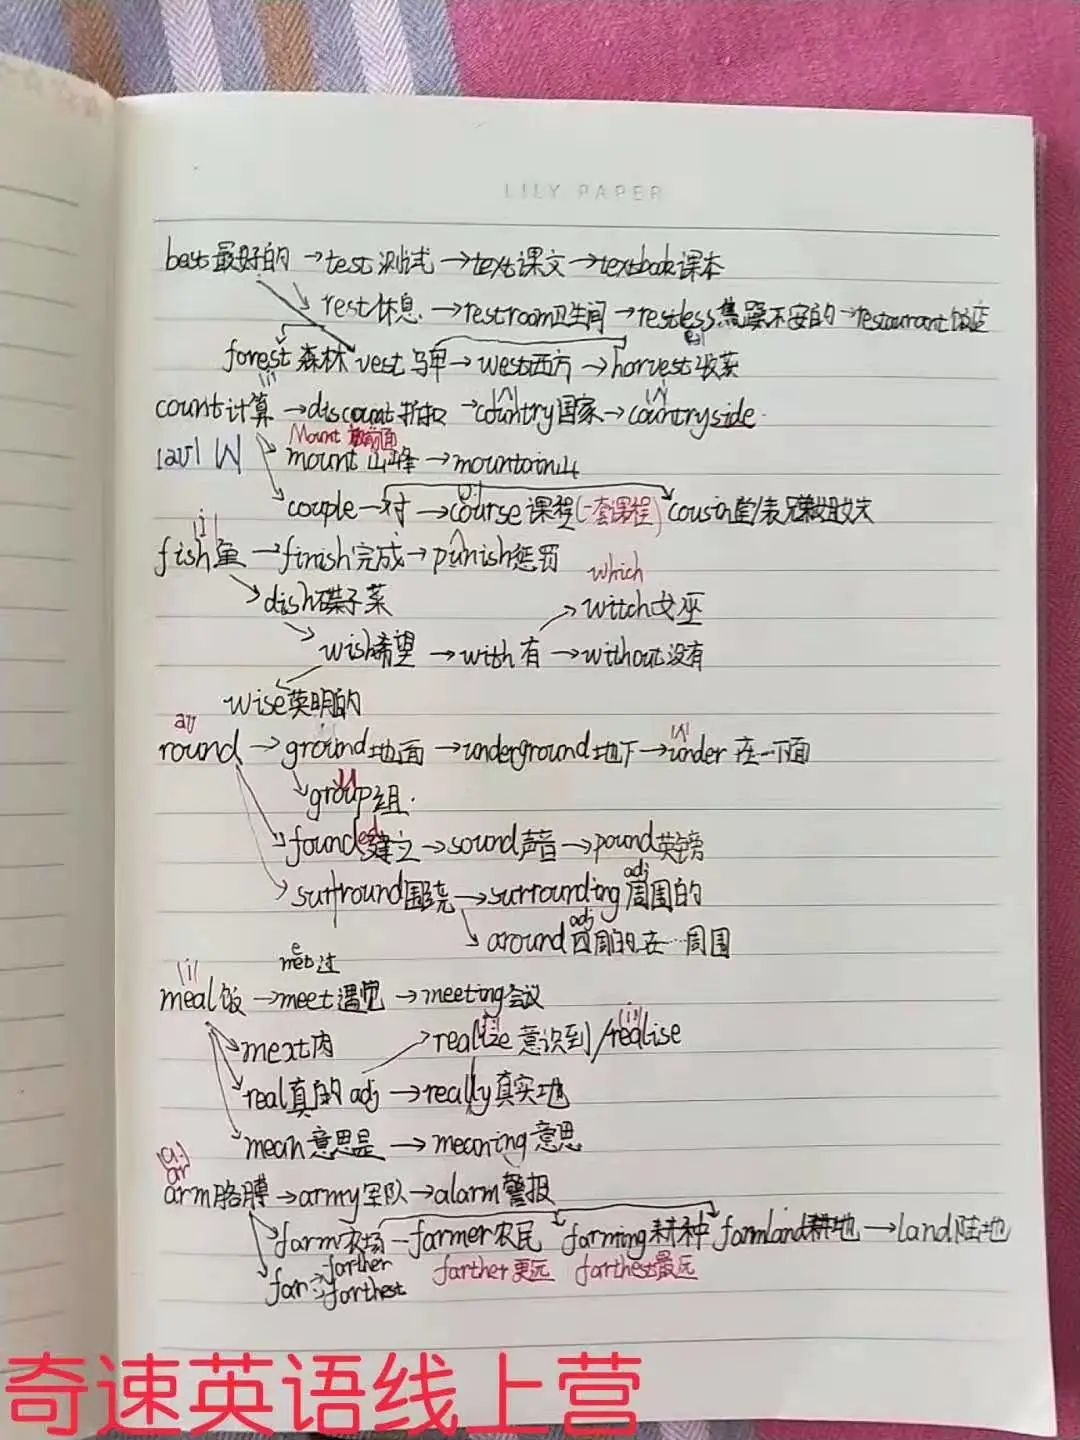 LILY PAPER
best最好的→test测试→text课文→textbook课本
rest休息→restroom卫生间→restless焦躁不安的→restaurant饭店
forest森林 vest马甲→west西方→harvest收获
count计算→discount折扣→country国家→countryside
Mount 放前面
|aʊ| |ʌ| mount山峰→mountain山
couple一对→course课程(一套课程) cousin堂/表兄弟姐妹
|i|
fish鱼→finish完成→punish惩罚
which
dish碟子菜 →witch女巫
wish希望→with有→without没有
wise英明的
au
round→ground地面→underground地下→under在…下面
|ʌ|
u
group组.
founded建立→sound声音→pound英镑
adj
surround围绕→surrounding周围的
adj
around四周的.在…周围
e
met过
|i|
meal饭→meet遇见→meeting会议
meat肉 realize意识到/realise
real真的adj→really真实地
mean意思是→meaning意思
|a:|
ar
arm胳膊→army军队→alarm警报
farm农场—farmer农民 farming耕种 farmland耕地→land陆地
far→farther farther更远 farthest最远
→farthest
奇速英语线上营